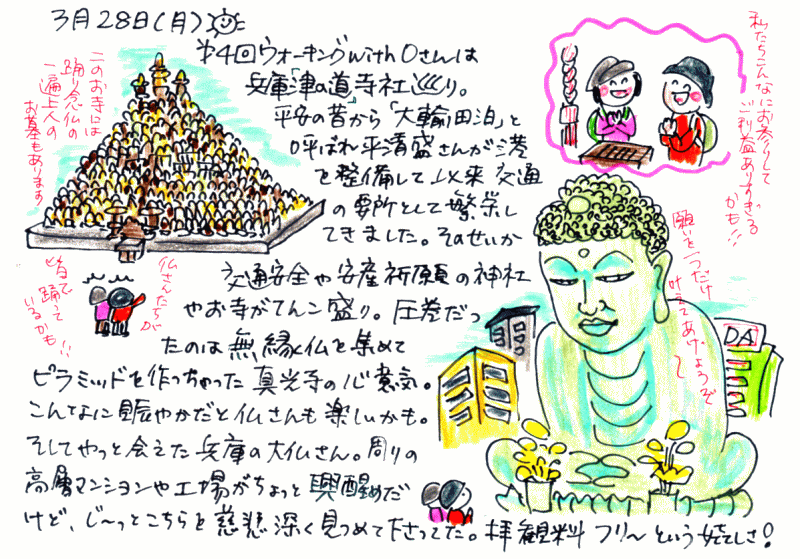 3月28日(月)
第4回ウォーキングwith Oさんは
兵庫「津の道」寺社巡り。
平安の昔から「大輪田泊」と
呼ばれ平清盛さんが港
を整備して以来 交通
の要所として繁栄し
てきました。そのせいか
交通安全や安産祈願の神社
やお寺がてんこ盛り。圧巻だっ
たのは無縁仏を集めて
ピラミッドを作っちゃった真光寺の心意気。
こんなに賑やかだと仏さんも楽しいかも。
そしてやっと会えた兵庫の大仏さん。周りの
高層マンションや工場がちょっと興醒めだ
けど、じ〜っとこちらを慈悲深く見つめて下さってた。拝観料フリ〜という嬉しさ!
このお寺には
踊り念仏の
一遍上人の
お墓もあります
仏さんたちが
皆で踊って
いるかも!!
私たちこんなにお参りして
ご利益ありすぎる
かも!!
願いを一つだけ
叶えてあげようぞ〜
DA